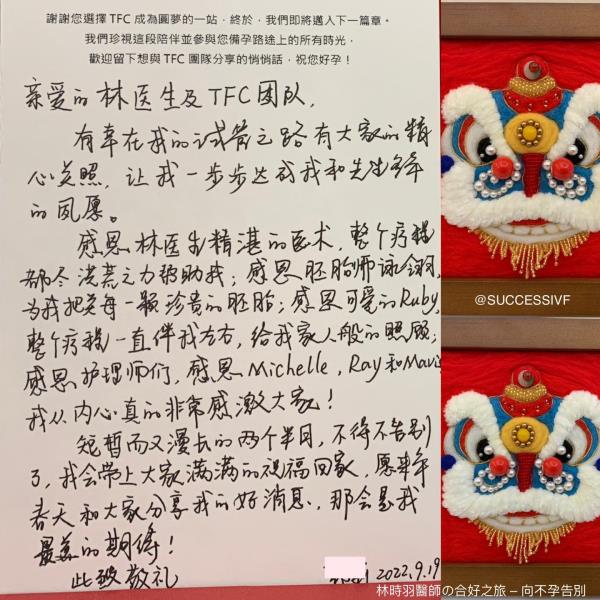 謝謝您選擇 TFC 成為圓夢的一站，終於，我們即將邁入下一篇章。
我們珍視這段陪伴並參與您備孕路途上的所有時光，
歡迎留下想與 TFC 團隊分享的悄悄話，祝您好孕！
亲爱的林医生及TFC团队，
有幸在我的试管之路有大家的精
心关照，让我一步步达成我和先生多年
的夙愿。
感恩林医生精湛的医术，整个疗程
都尽洪荒之力帮助我；感恩胚胎师詠翎，
为我把关每一颗珍贵的胚胎；感恩可爱的Ruby，
整个疗程一直伴我左右，给我家人般的照顾；
感恩护理师们，感恩Michelle，Ray和Mavis
我从内心真的非常感激大家！
短暂而又漫长的两个半月，不得不告别
了，我会带上大家满满的祝福回家，愿来年
春天和大家分享我的好消息，那会是我
最美的期待！
此致敬礼
2022.9.19
@SUCCESSIVF
林時羽醫師の合好之旅 – 向不孕告別